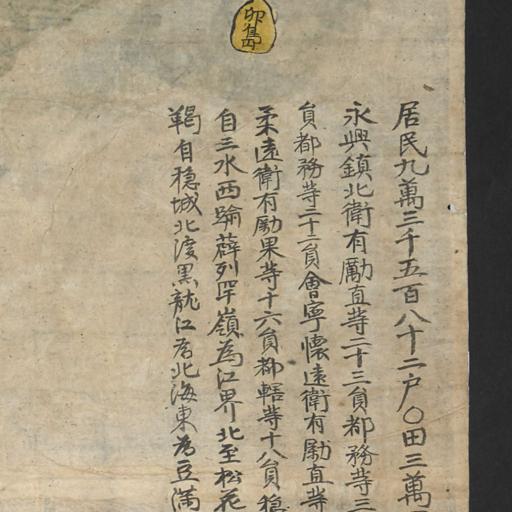 卵島
居民九萬三千五百八十二户〇田三萬
永興鎮北衛有勵直等二十三負都務等三
負都務等二十二負會寧懷遠衛有勵直等
柔遠衛有勵果等十六負都轄等十八負穏
自三水西踰薛列罕嶺為江界北至松花
羯自穏城北渡黒龍江為北海東為豆滿